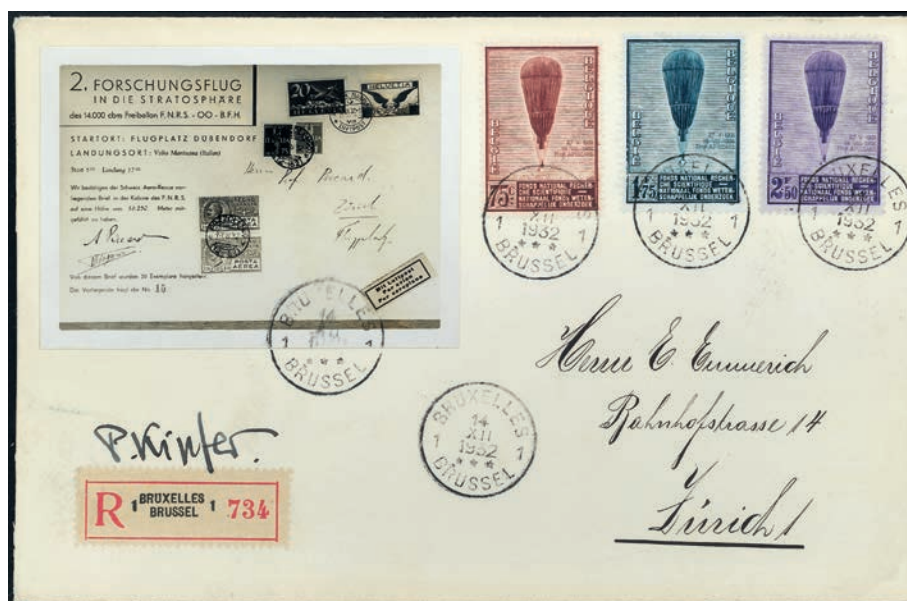 2. FORSCHUNGSFLUG
IN DIE STRATOSPHÄRE
des 14.000 cbm Freiballon F.N.R.S. - OO - B.F.H.
STARTORT: FLUGPLATZ DÜBENDORF
LANDUNGSORT: Volta Mantovana (Italien)
Start Landung
Wir bestätigen der Schweiz. Aero-Revue
liegenden Brief in der Kabine des F.N.R.S.
auf eine Höhe von Meter mit-
geführt zu haben.
A Piccard
Von diesem Brief wurden 20 Exemplare
Das Vorliegende trägt die No.
20
HELVETIA
Herrn Prof. Piccard
Zürich
POSTA
AEREA
Mit Luftpost
Par avion
Per aeroplano
BELGIQUE
BELGIË
75c
FONDS NATIONAL RECHER-
CHE SCIENTIFIQUE
NATIONAAL FONDS WETEN-
SCHAPPELIJK ONDERZOEK
BELGIQUE
BELGIË
1F75
FONDS NATIONAL RECHER-
CHE SCIENTIFIQUE
NATIONAAL FONDS WETEN-
SCHAPPELIJK ONDERZOEK
BELGIQUE
BELGIË
2F50
FONDS NATIONAL RECHER-
CHE SCIENTIFIQUE
NATIONAAL FONDS WETEN-
SCHAPPELIJK ONDERZOEK
1 XII 1
1932
***
BRUSSEL
1 XII 1
1932
***
BRUSSEL
1 XII 1
1932
***
BRUSSEL
BRUXELLES
14
1 1
***
BRUSSEL
BRUXELLES
14
1 XII 1
1932
***
BRUSSEL
Herrn E. Emmerich
Bahnhofstrasse 14
Zürich 1
P. Kipfer.
R 1 BRUXELLES BRUSSEL 1 734